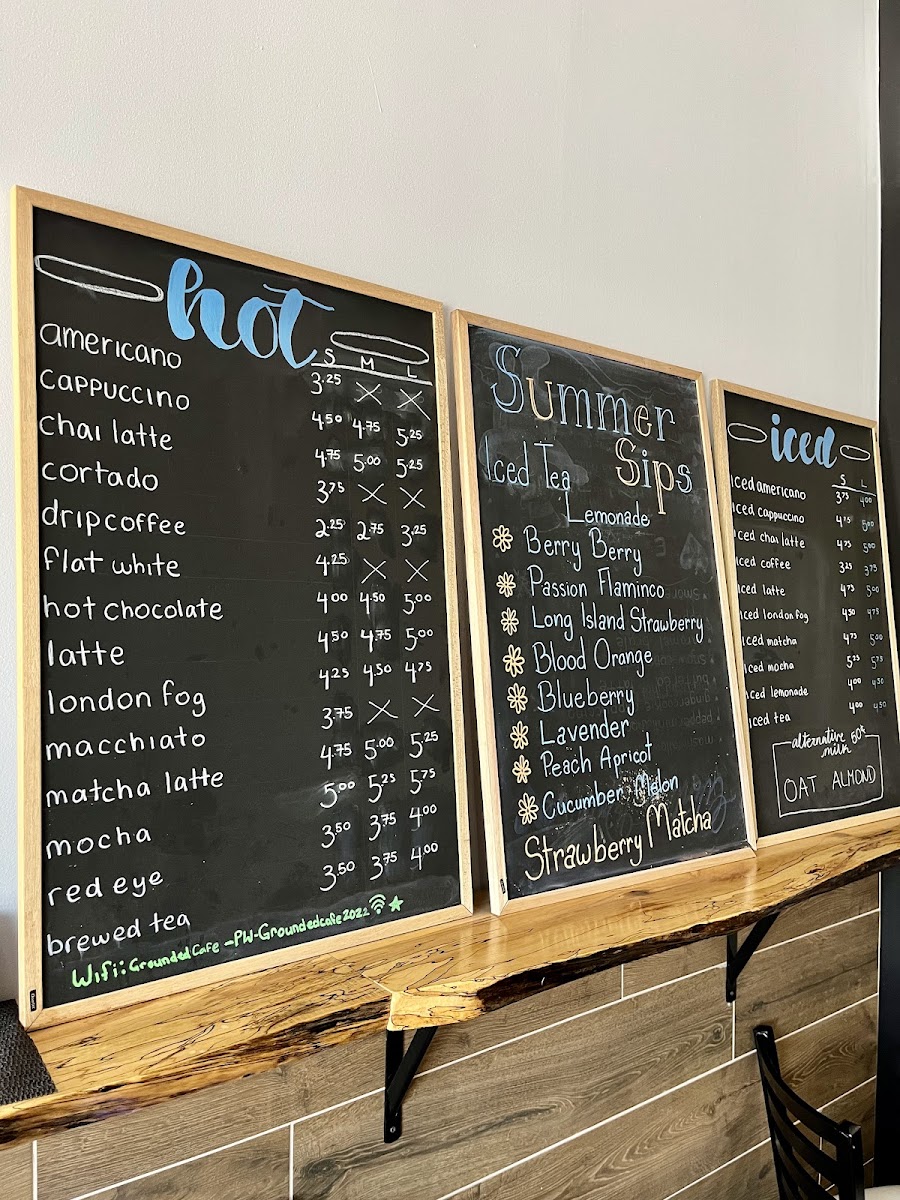 hot
S M L
americano 3.25 X X
cappuccino 4.50 4.75 5.25
chai latte 4.75 5.00 5.25
cortado 3.75 X X
drip coffee 2.25 2.75 3.25
flat white 4.25 X X
hot chocolate 4.00 4.50 5.00
latte 4.50 4.75 5.00
london fog 4.25 4.50 4.75
macchiato 3.75 X X
matcha latte 4.75 5.00 5.25
mocha 5.00 5.25 5.75
red eye 3.50 3.75 4.00
brewed tea 3.50 3.75 4.00
Wifi: Grounded Cafe - PW-Groundedcafe2022
Summer
Sips
Iced Tea
Lemonade
Berry Berry
Passion Flaminco
Long Island Strawberry
Blood Orange
Blueberry
Lavender
Peach Apricot
Cucumber Melon
Strawberry Matcha
iced
S L
iced americano 3.75 4.00
iced cappuccino 4.75 5.00
iced chai latte 4.75 5.00
iced coffee 3.25 3.75
iced latte 4.75 5.00
iced london fog 4.50 4.75
iced matcha 4.75 5.00
iced mocha 5.25 5.75
iced lemonade 4.00 4.50
iced tea 4.00 4.50
alternative milk 50¢
OAT ALMOND